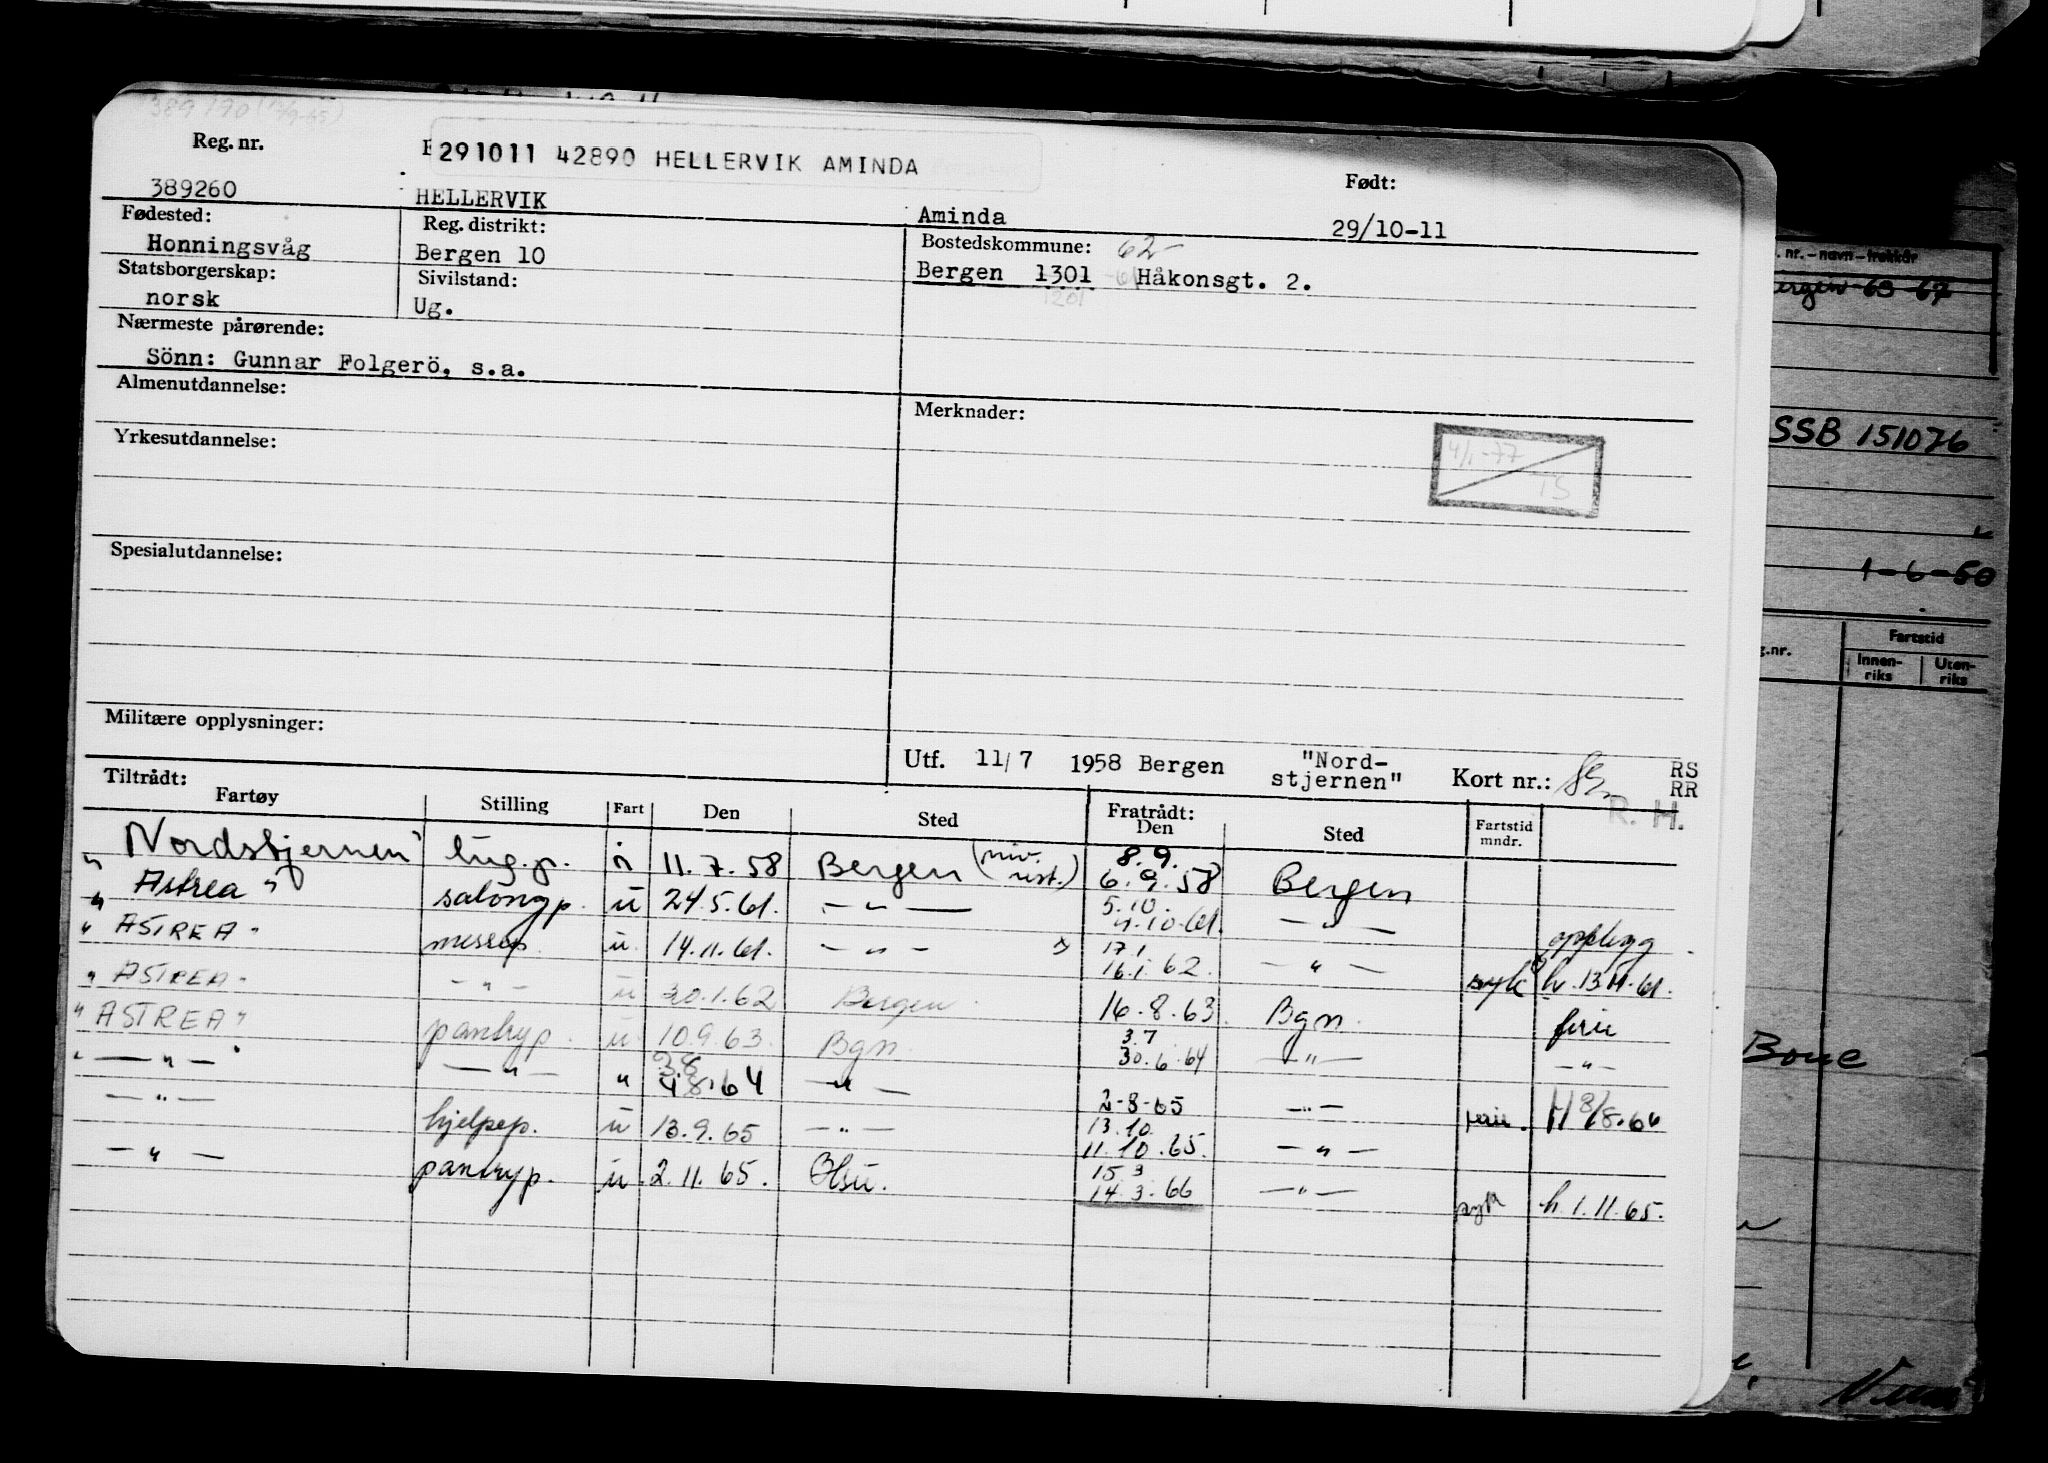 389190 (
Reg. nr.
291011 42890 HELLERVIK AMINDA
Født:
389260
HELLERVIK
Aminda
29/10-11
Fødested:
Reg. distrikt:
Bostedskommune: 62-
Honningsvåg
Bergen 10
Bergen 1301 -61 Håkonsgt. 2.
1201
Statsborgerskap:
Sivilstand:
norsk
Ug.
Nærmeste pårørende:
Sönn: Gunnar Folgerö, s.a.
Almenutdannelse:
Merknader:
4/1-77
TS
Yrkesutdannelse:
Spesialutdannelse:
Militære opplysninger:
Utf. 11/7 1958 Bergen "Nord-
stjernen" Kort nr.:
RS
RR
R. H.
Tiltrådt:
Fartøy Stilling Fart Den Sted Fratrådt: Den Sted Fartstid mndr.
"Nordstjernen" lug.p. 11.7.58 Bergen 8.9. 6.9.58 Bergen
"Astrea" salongp. u 24.5.61. — " — 5.10. 4.10.61. — " — opplegg
"ASTREA" messep. u. 14.11.61. — " — 17.1 16.1.62. — " — syk h. 13.11.61.
"ASTREA" — " — u 30.1.62 Bergen 16.8.63 Bgn ferie
"ASTREA" pantryp. u. 10.9.63. Bgn 3.7 30.6.64 — " — — " —
— " — — " — " 3.8 4.8.64 — " — 2-8-65 — " — ferie. 8/8.64
— " — hjelpep. u 13.9.65 — " — 13.10. 11.10.65. — " —
— " — pantryp. u. 2.11.65. 15.3 14.3.66 — " — syk h. 1.11.65.
nr. – navn – trekkår
Bergen 63 67
SSB 151076
1-6-50
Fartstid
Innen-
riks
Uten-
riks